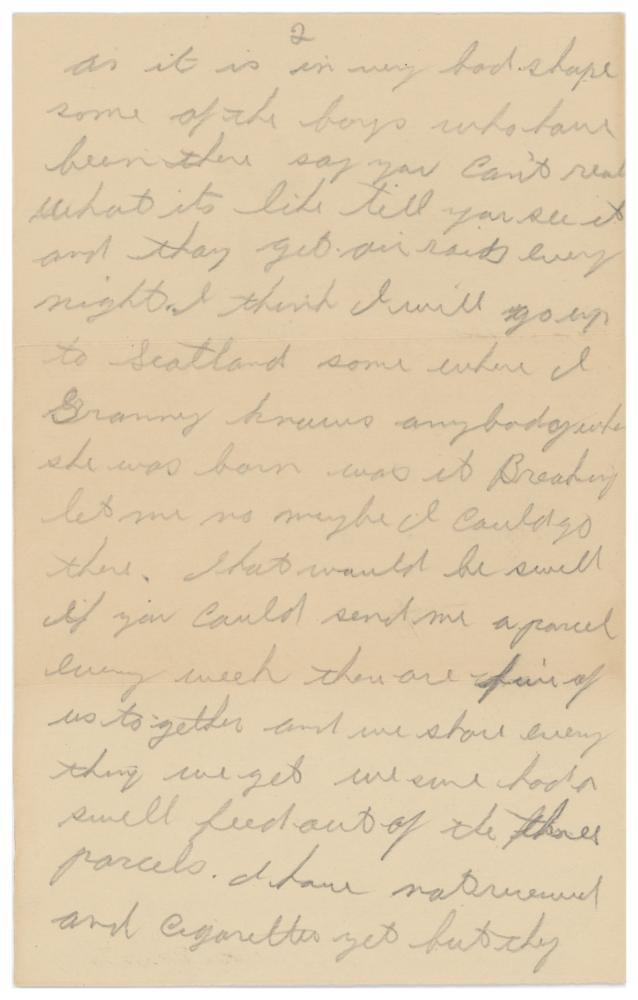 2
as it is in very bad shape
some of the boys who have
been there say you can't real
what its like till you see it
and thay get air raids every
night. I think I will go up
to Scotland some where I
Granny knows anybody whe
she was born was it Breahing
let me no maybe I could go
there. That would be swell
if you could send me a parcel
every week there are five of
us together and we share every
thing we get we sure had a
swell feed out of the three
parcels. I have not received
and cigarettes yet but they